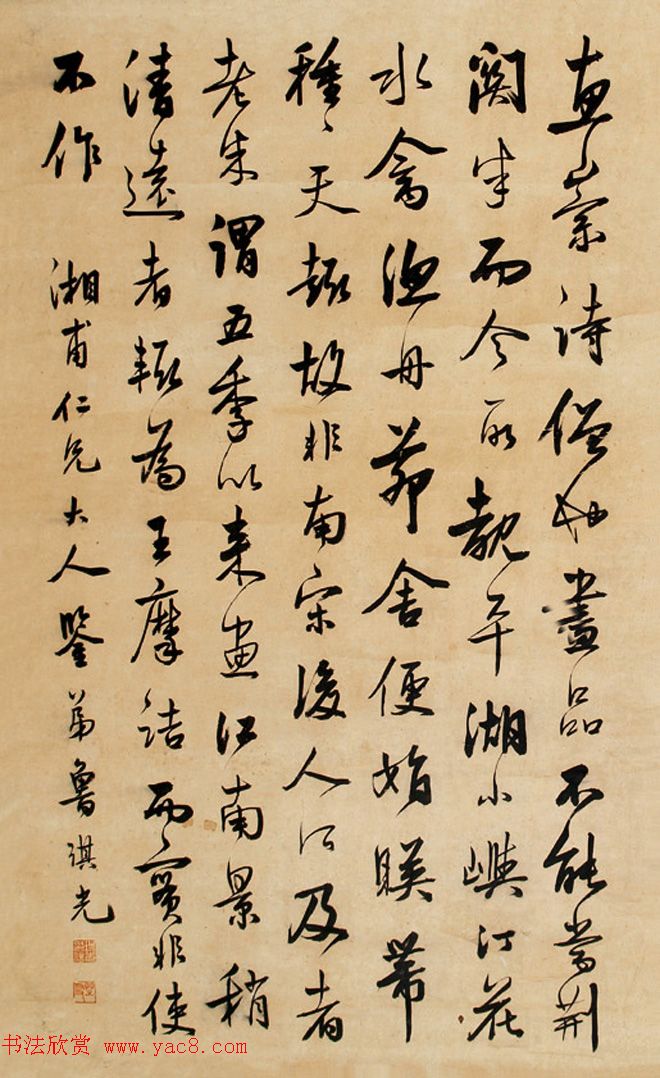 惠崇詩僧也畫品不能當荆
関半而今所覩平湖小嶼汀花
水禽漁舟茆舍便娟映帶
種〻天趣故非南宋後人所及者
老朱謂五季以來畫江南景稍
清遠者輒為王摩詰而實非使
不作
湘甫仁兄大人鑒 弟魯琪光
书法欣赏 www.yac8.com